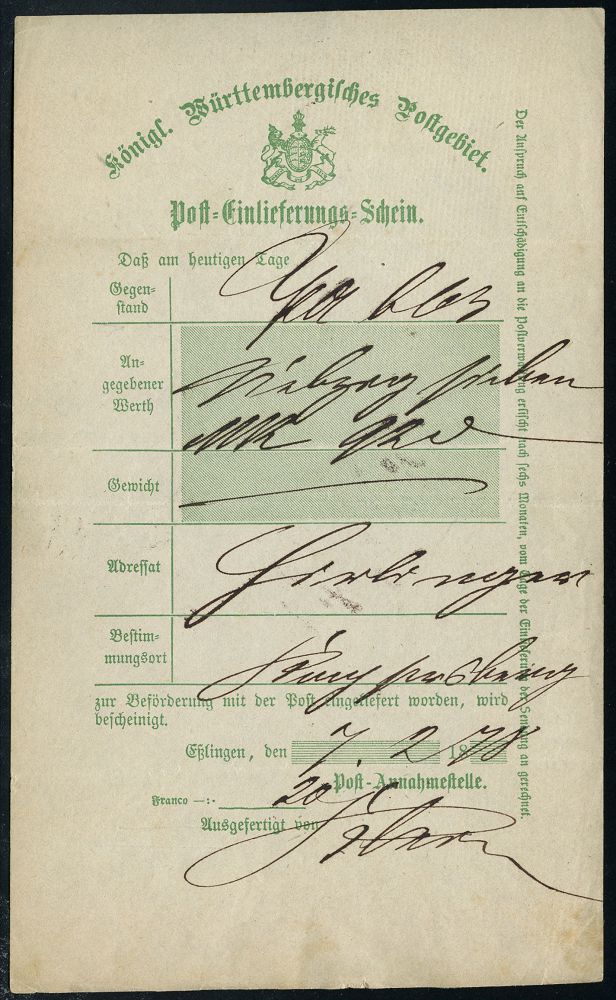 Königl. Württembergisches Postgebiet.
Post-Einlieferungs-Schein.
Daß am heutigen Tage
Gegen-
stand
An-
gegebener
Werth
siebzig sieben
Mk
Gewicht
Adressat
Bestim-
mungsort
zur Beförderung mit der Post eingeliefert worden, wird
bescheinigt.
Eßlingen, den 7. 2. 1878
Post-Annahmestelle.
Franco —:— 20
Ausgefertigt von
Der Anspruch auf Entschädigung an die Postverwaltung erlischt nach sechs Monaten, vom Tage der Einlieferung der Sendung an gerechnet.